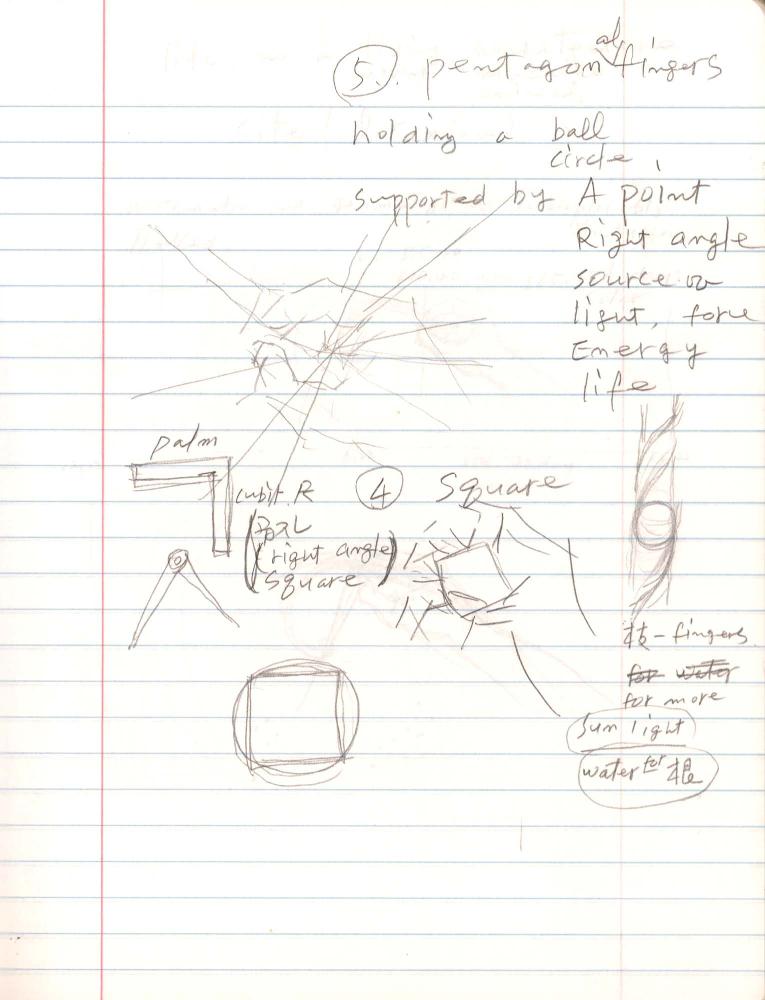 5. pentagonal fingers
holding a ball
circle,
supported by A point
Right angle
source or
light, force
Energy
life
palm
cubit R
(right angle)
square
4 Square
枝-fingers
for water
for more
Sun light
water for 根